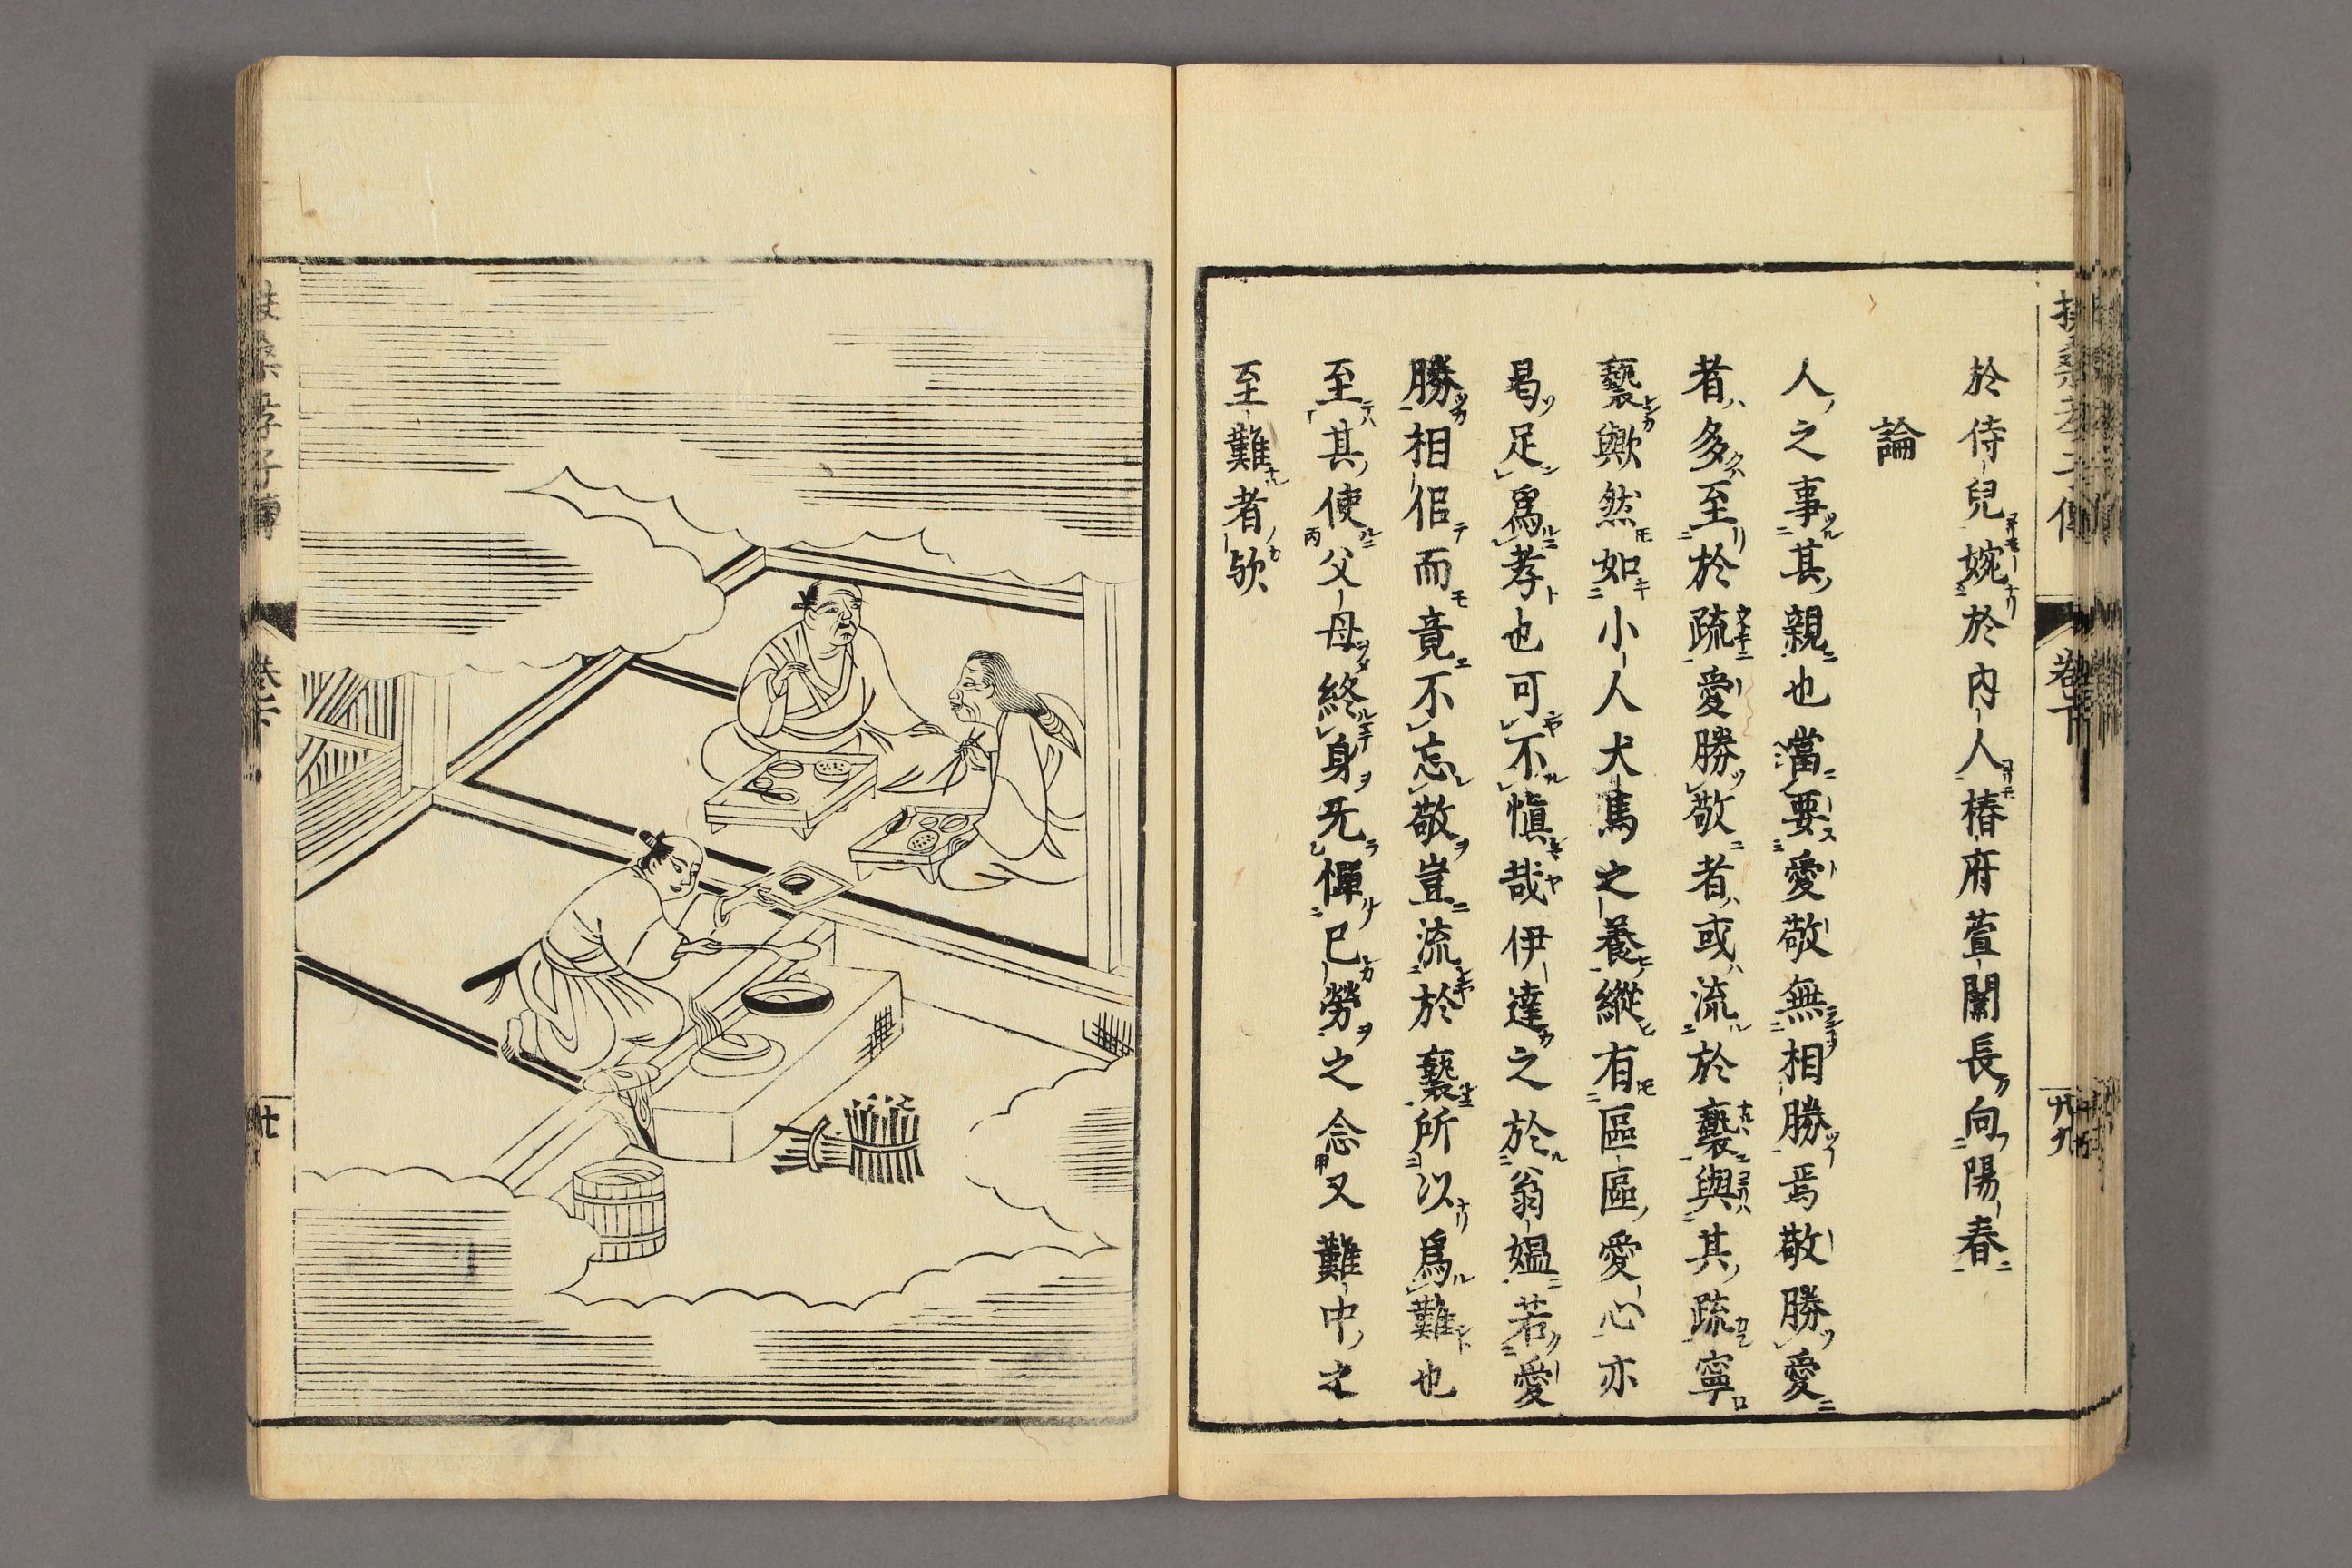 扶桑孝子傳 卷下 十九
於侍兒婉於內人椿府萱闈長向陽春
論
人之事其親也當要愛敬無相勝焉敬勝愛
者多至於疏愛勝敬者或流於褻與其疏寧
褻歟然如小人犬馬之養縱有區區愛心亦
曷足爲孝也可不愼哉伊達之於翁媼若愛
勝相侶而竟不忘敬豈流於褻所以爲難也
至其使父母終身旡憚已勞之念又難中之
至難者歟
扶桑孝子傳 卷下 廿